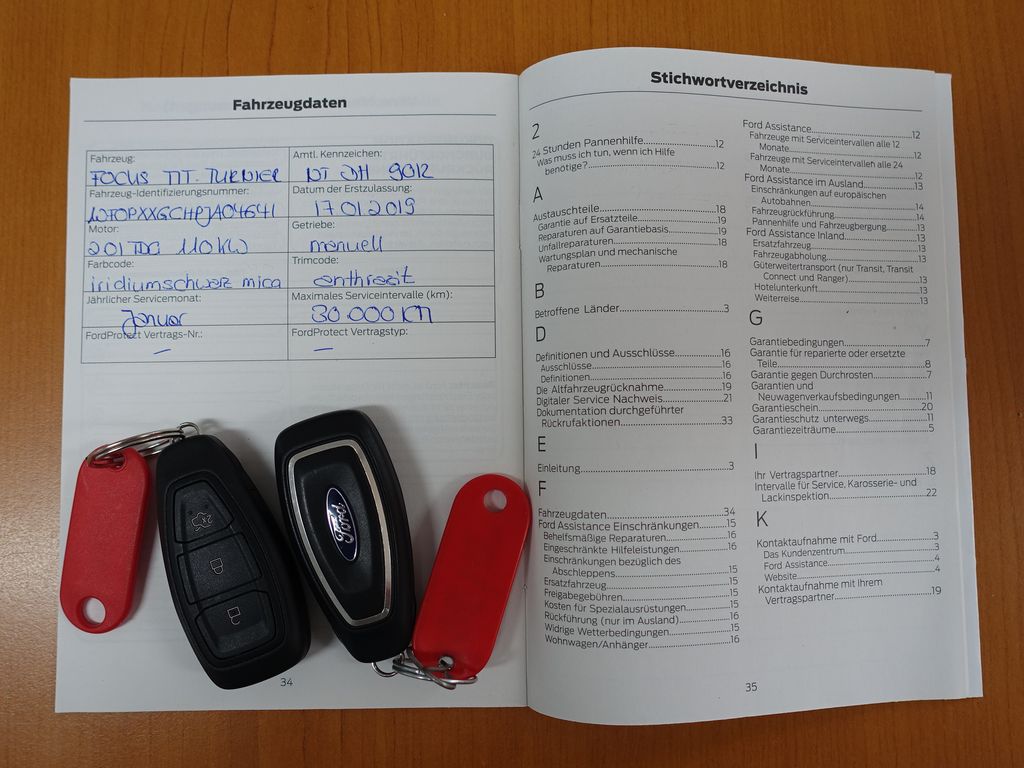 Fahrzeugdaten
Fahrzeug:
FOCUS TIT. TURNIER
Amtl. Kennzeichen:
9012
Fahrzeug-Identifizierungsnummer:
Datum der Erstzulassung:
17 01 2019
Motor:
110 KW
Getriebe:
manuell
Farbcode:
iridiumschwarz mica
Trimcode:
anthrazit
Jährlicher Servicemonat:
Januar
Maximales Serviceintervalle (km):
30.000 km
FordProtect Vertrags-Nr.:
—
FordProtect Vertragstyp:
—
2x
Ford
34
Stichwortverzeichnis
2
24 Stunden Pannenhilfe.....12
Was muss ich tun, wenn ich Hilfe
benötige?.....12
A
Austauschteile.....18
Garantie auf Ersatzteile.....19
Reparaturen auf Garantiebasis.....19
Unfallreparaturen.....18
Wartungsplan und mechanische
Reparaturen.....18
B
Betroffene Länder.....3
D
Definitionen und Ausschlüsse.....16
Ausschlüsse.....16
Definitionen.....16
Die Altfahrzeugrücknahme.....19
Digitaler Service Nachweis.....21
Dokumentation durchgeführter
Rückrufaktionen.....33
E
Einleitung.....3
F
Fahrzeugdaten.....34
Ford Assistance Einschränkungen.....15
Behelfsmäßige Reparaturen.....16
Eingeschränkte Hilfeleistungen.....16
Einschränkungen bezüglich des
Abschleppens.....15
Ersatzfahrzeug.....15
Freigabegebühren.....15
Kosten für Spezialausrüstungen.....15
Rückführung (nur im Ausland).....16
Widrige Wetterbedingungen.....15
Wohnwagen/Anhänger.....16
Ford Assistance.....12
Fahrzeuge mit Serviceintervallen alle 12
Monate.....12
Fahrzeuge mit Serviceintervallen alle 24
Monate.....12
Ford Assistance im Ausland.....13
Einschränkungen auf europäischen
Autobahnen.....14
Fahrzeugrückführung.....14
Pannenhilfe und Fahrzeugbergung.....13
Ford Assistance Inland.....13
Ersatzfahrzeug.....13
Fahrzeugabholung.....13
Güterweitertransport (nur Transit, Transit
Connect und Ranger).....13
Hotelunterkunft.....13
Weiterreise.....13
G
Garantiebedingungen.....7
Garantie für reparierte oder ersetzte
Teile.....8
Garantie gegen Durchrosten.....7
Garantien und
Neuwagenverkaufsbedingungen.....11
Garantieschein.....20
Garantieschutz unterwegs.....11
Garantiezeiträume.....5
I
Ihr Vertragspartner.....18
Intervalle für Service, Karosserie- und
Lackinspektion.....22
K
Kontaktaufnahme mit Ford.....3
Das Kundenzentrum.....3
Ford Assistance.....4
Website.....4
Kontaktaufnahme mit Ihrem
Vertragspartner.....19
35